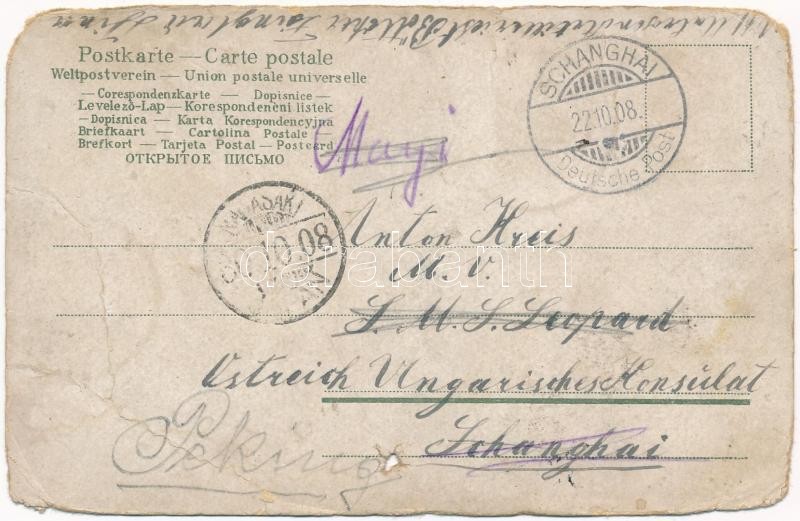 Postkarte — Carte postale
Weltpostverein — Union postale universelle
— Corespondenzkarte — Dopisnice —
Levelező-Lap — Korespondenčni listek
— Dopisnica — Karta Korespondencyjna
Briefkaart — Cartolina Postale —
Brefkort — Tarjeta Postal — Postcard
ОТКРЫТОЕ ПИСЬМО
SCHANGHAI
22.10.08.
Deutsche Post
NAGASAKI
10.08
Anton Kreis
M. V.
S. M. S. Leopard
Ostreich Ungarisches Konsulat
Schanghai
Peking
darabanth